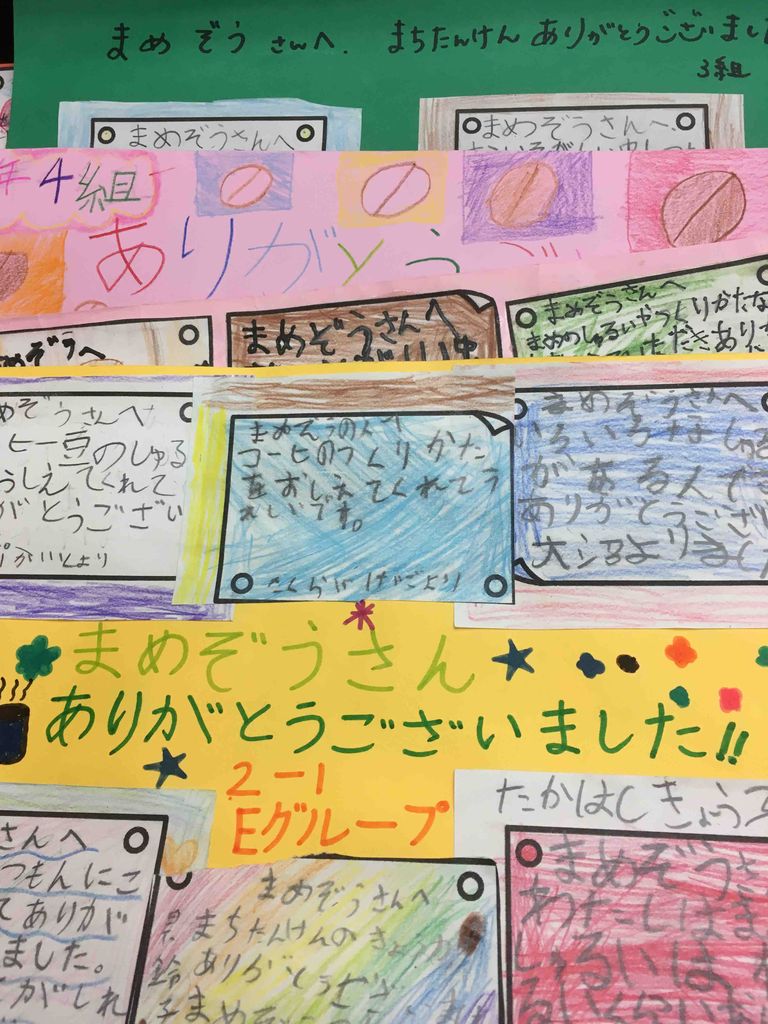 まめぞうさんへ. まちたんけんありがとうございまし
3組
まめぞうさんへ
まめぞうさんへ.
年4組
ありがとう
めぞうへ
まめぞうさんへ
まめぞうさんへ
まめのしゅるいやつくりかたな
ただきありが
めぞうさんへ
ヒー豆のしゅる
うしえてくれて
がとうござい
より
コーヒのつくりかた
をおしえてくれてう
れしいです。
より
まめぞうさんへ
いろいろな
があるんで
ありがとうござい
より
まめぞうさん
ありがとうございました!!
2-1
Eグループ
さんへ
つもんにこ
てありが
ました。
がしれ
まめぞうさんへ
まちたんけんのきょうか
ありがとうござ
まめぞ
たかはしきょう
まめぞうさ
わたしはま
しゅるいは
るいくらいだ